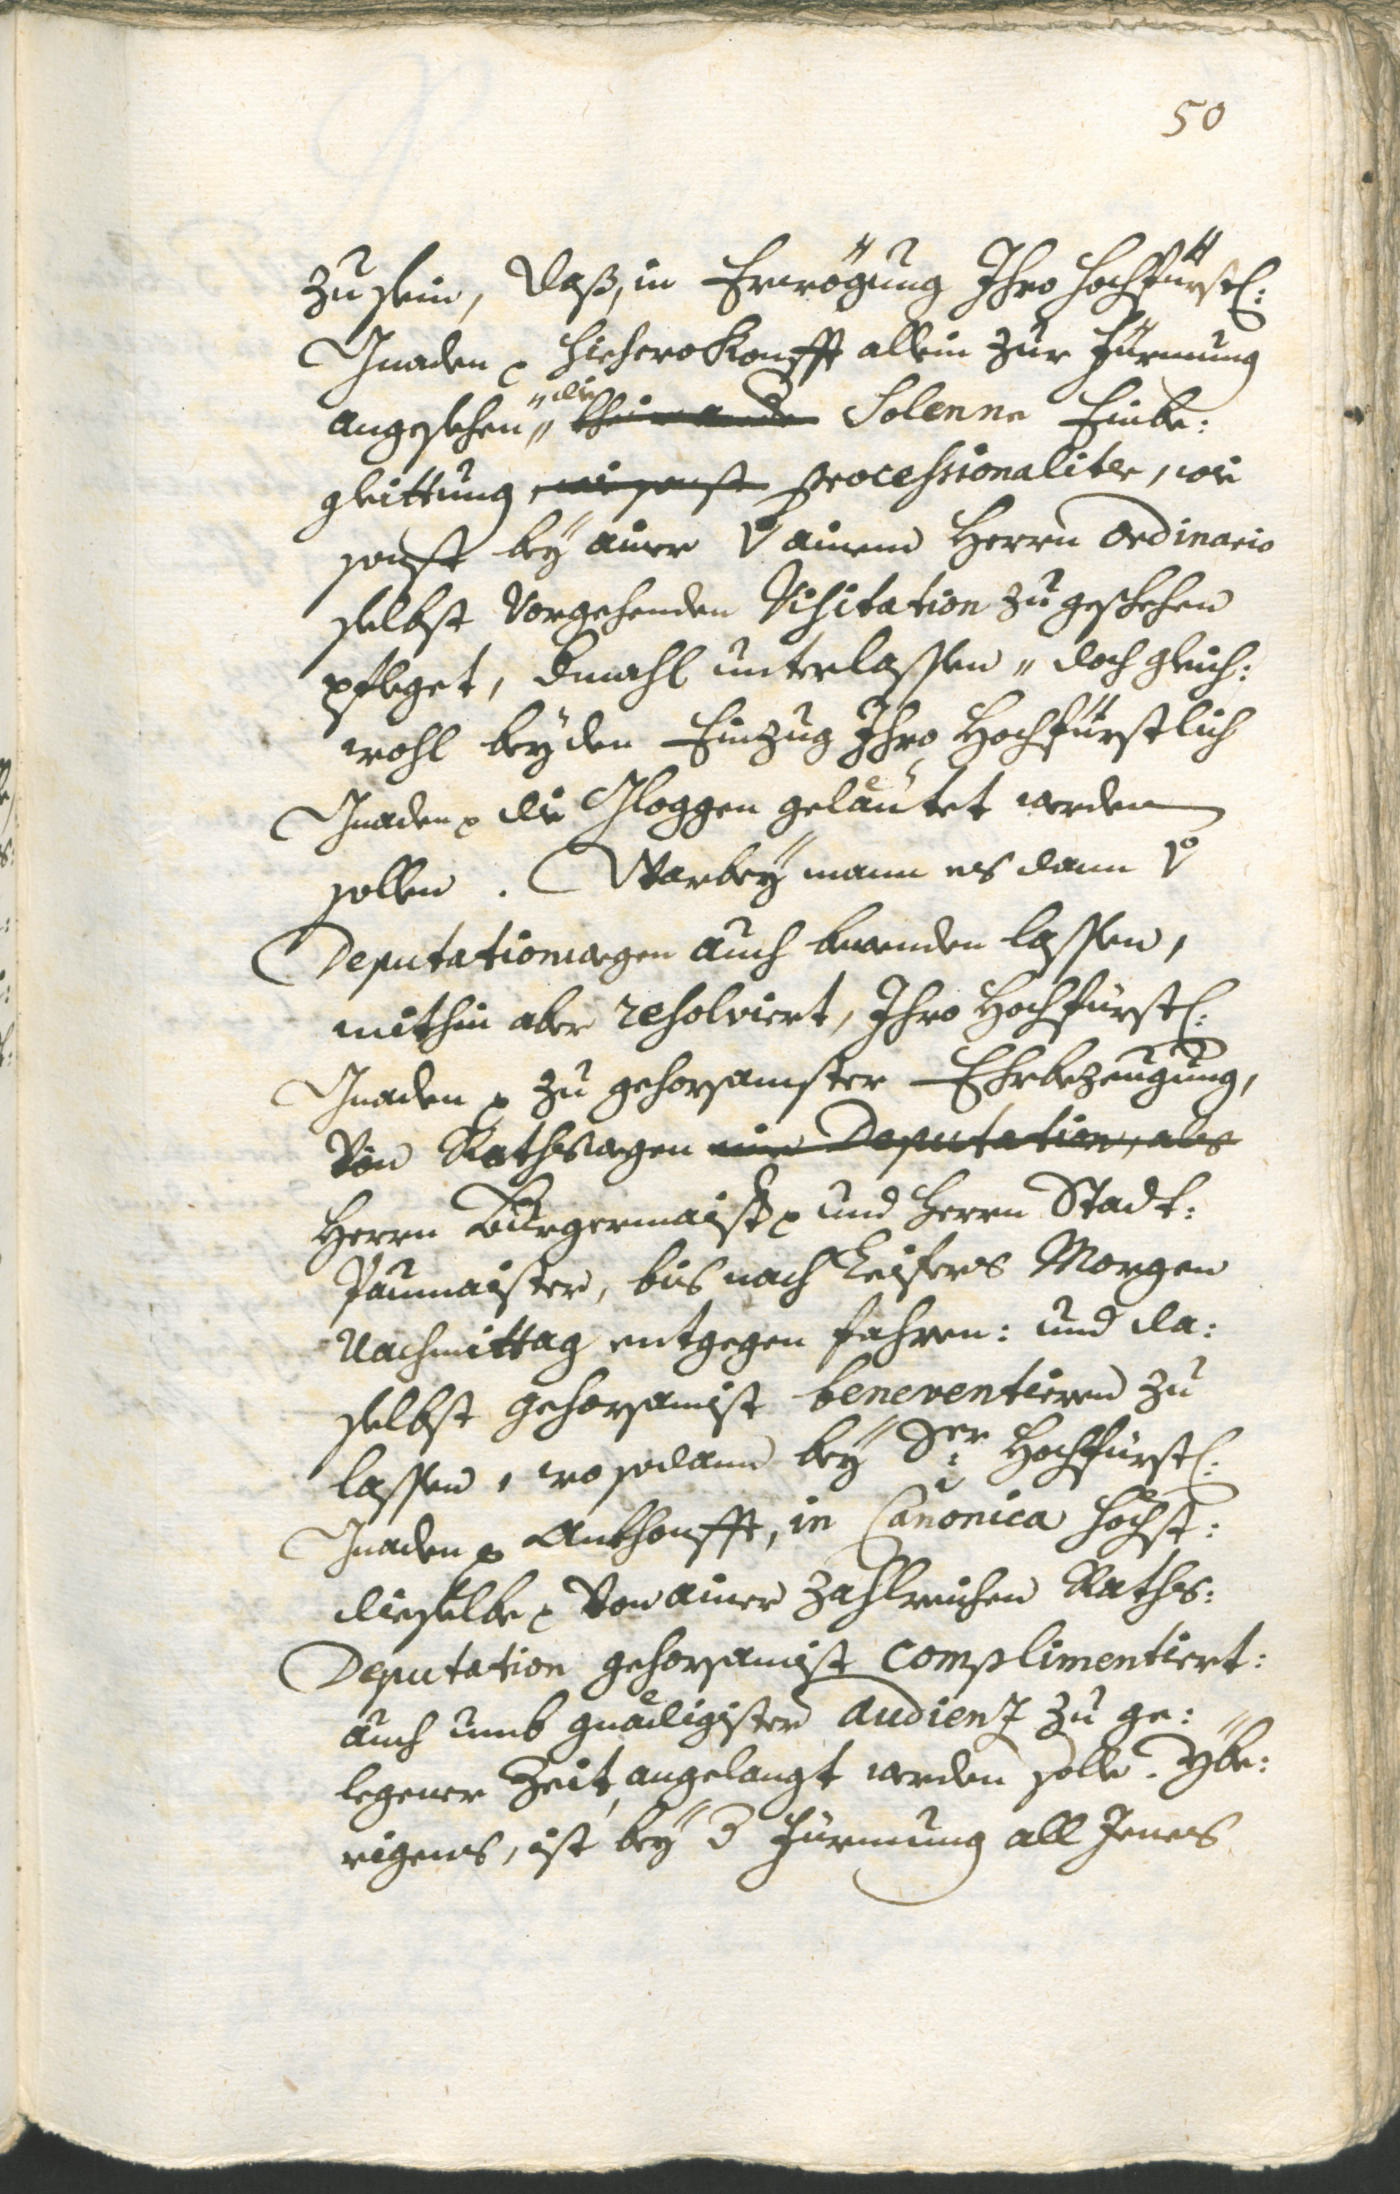 50
zu sein, daß, in Erwögung Ihro hochfürstl:
Gnaden p hieherokonfft allein zur Fürmung
angesehen, die Solenne Einbe:
gleittung, wie sonst processionaliter, wie
sonst bey ainer v ainem Herrn Ordinario
selbst vorgehenden Visitation zugeschehen
pfleget, dmahl unterlassen, doch gleich:
wohl bey den Einzug Ihro Hochfürstlich
Gnaden p die Gloggen geläutet werden
sollen. Warbey mann es dann v
Deputationwegen auch bewenden lassen,
mithin aber resolviert, Ihro Hochfürstl:
Gnaden p zu gehorsamster Ehrbezeugung,
von Rathswegen eine Deputation, als
Herrn Burgermaistr p und Herrn Stadt:
Paumaister, bis nach Leifers Morgen
Nachmittag entgegen fahren: und da:
selbst gehorsamist beneventieren zu
lassen, wo sodann bey Der: Hochfürstl:
Gnaden p Ankhonfft, in Canonica höchst:
dieselbe p von ainer zahlreichen Raths:
Deputation gehorsamist complimentiert:
auch umb gnädigister Audienz zu ge:
legener Zeit, angelangt werden solle. Ybe:
rigens, ist bey d Fürmung all Jenes